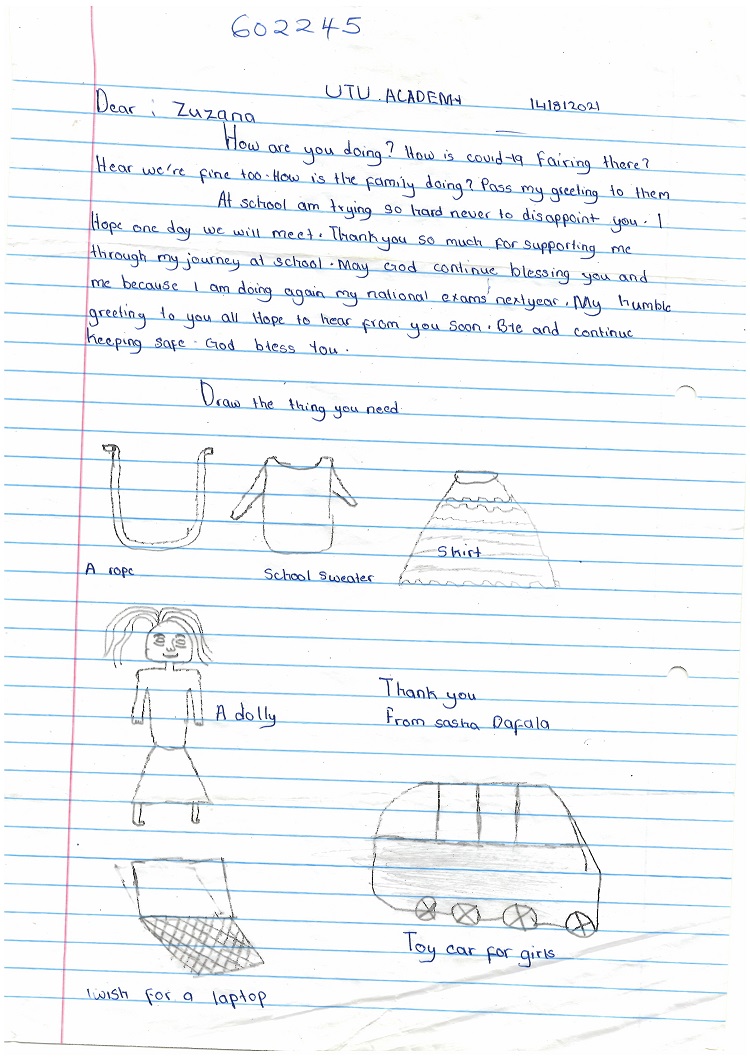 602245
UTU ACADEMY 14/8/2021
Dear : Zuzana
How are you doing? How is covid-19 Fairing there?
Hear we're fine too. How is the family doing? Pass my greeting to them
At school am trying so hard never to disappoint you. I
Hope one day we will meet. Thank you so much for supporting me
through my journey at school. May God continue blessing you and
me because I am doing again my national exams next year. My humble
greeting to you all Hope to hear from you soon. Bye and continue
keeping safe. God bless You.
Draw the thing you need
A rope
School Sweater
Skirt
A dolly
Thank you
From sasha Dafala
Toy car for girls
I wish for a laptop